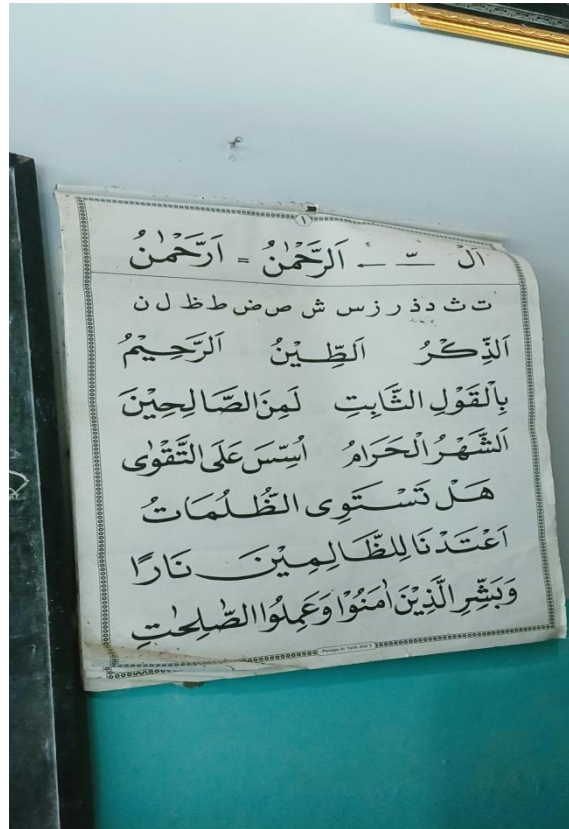 ١
اَلْ ــّـ ← اَلرَّحْمٰنُ = اَرَّحْمٰنُ
ت ث د ذ ر ز س ش ص ض ط ظ ل ن
اَلذِّكْرُ اَلطِّيْنُ اَلرَّحِيْمُ
بِالْقَوْلِ الثَّابِتِ لَمِنَ الصَّالِحِيْنَ
اَلشَّهْرُ الْحَرَامُ اُسِّسَ عَلَى التَّقْوٰى
هَلْ تَسْتَوِى الظُّلُمَاتُ
اَعْتَدْنَا لِلظَّالِمِيْنَ نَارًا
وَبَشِّرِ الَّذِيْنَ اٰمَنُوْا وَعَمِلُوا الصّٰلِحٰتِ